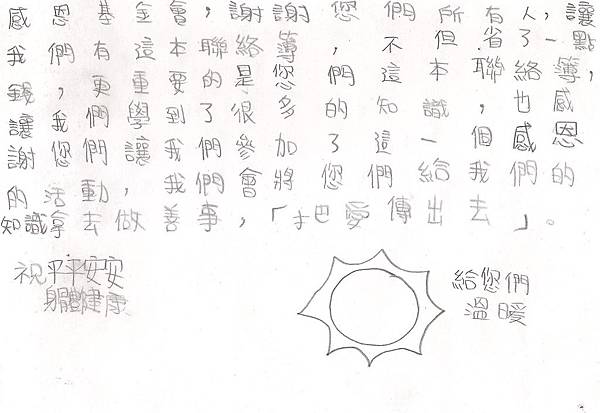 感恩基金會，謝謝您們所有人，讓
我們有這本聯絡簿，不但省了一點
錢，更重要的是您們這本聯絡簿，
讓我們學到了很多的知識，也感
謝您們讓我們參加了這一個感恩
的活動，我們會將您們給我們的
知識拿去做善事，「把愛傳出去」。
祝平平安安
身體健康
給您們
溫暖